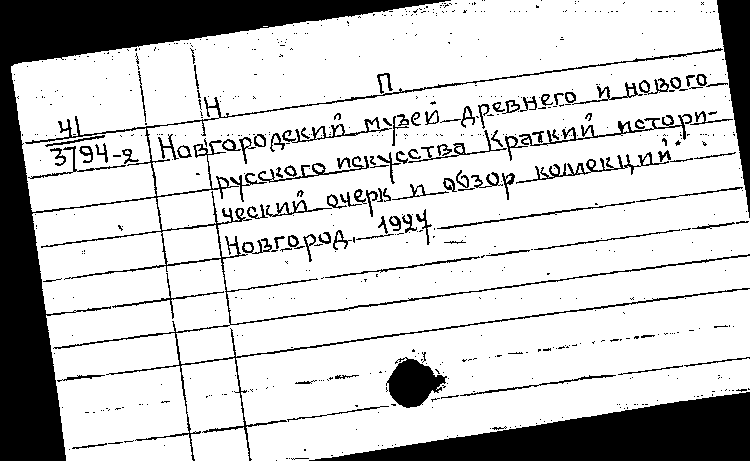 Н. П.
41
3794-2 Новгородский музей древнего и нового
русского искусства Краткий истори-
ческий очерк и обзор коллекций.
Новгород, 1927.